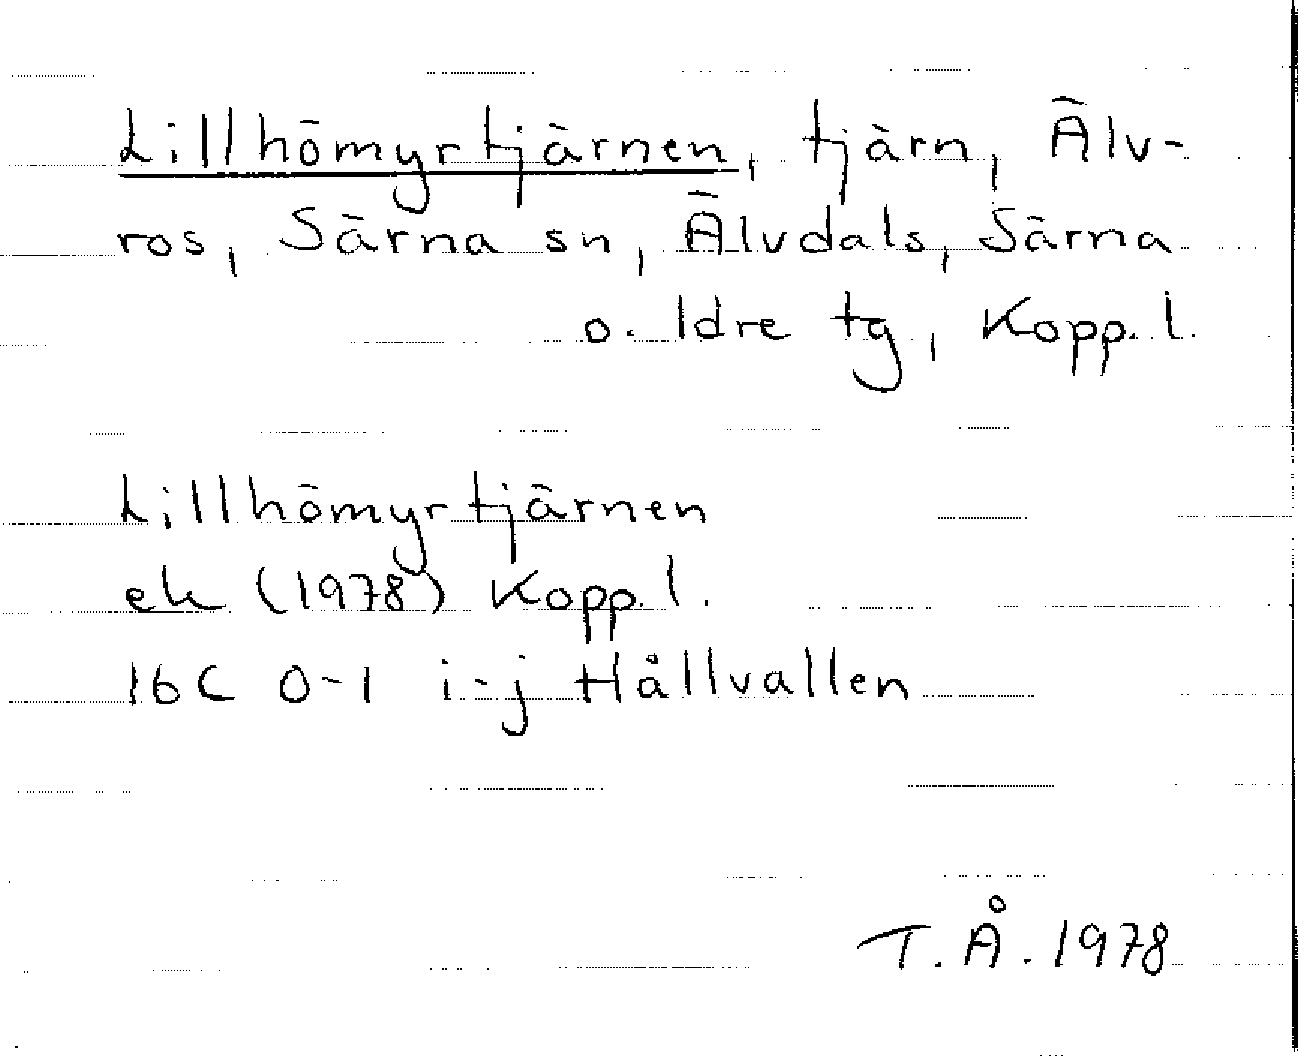 Lillhömyrtjärnen, tjärn, Älv-
ros, Särna sn, Älvdals, Särna
o. Idre tg, Kopp. l.
Lillhömyrtjärnen
ek (1978) Kopp. l.
16C 0-1 i-j Hållvallen
T.Å. 1978